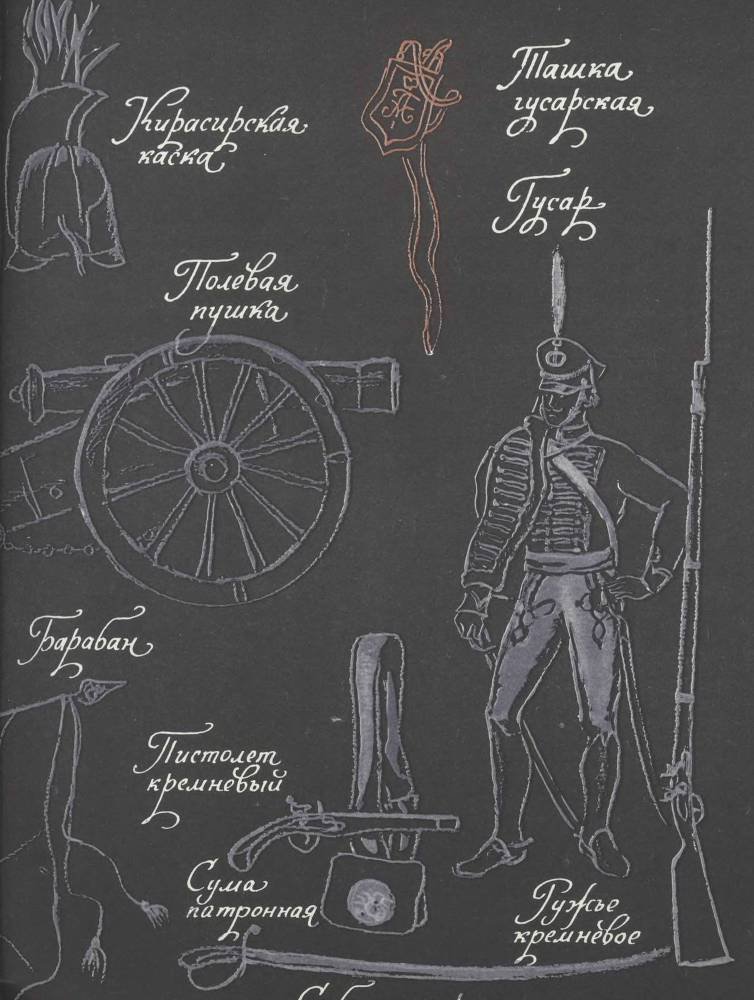 Кирасирская
каска
Ташка
гусарская
Гусар
Полевая
пушка
Барабан
Пистолет
кремнёвый
Сума
патронная
Ружьё
кремнёвое